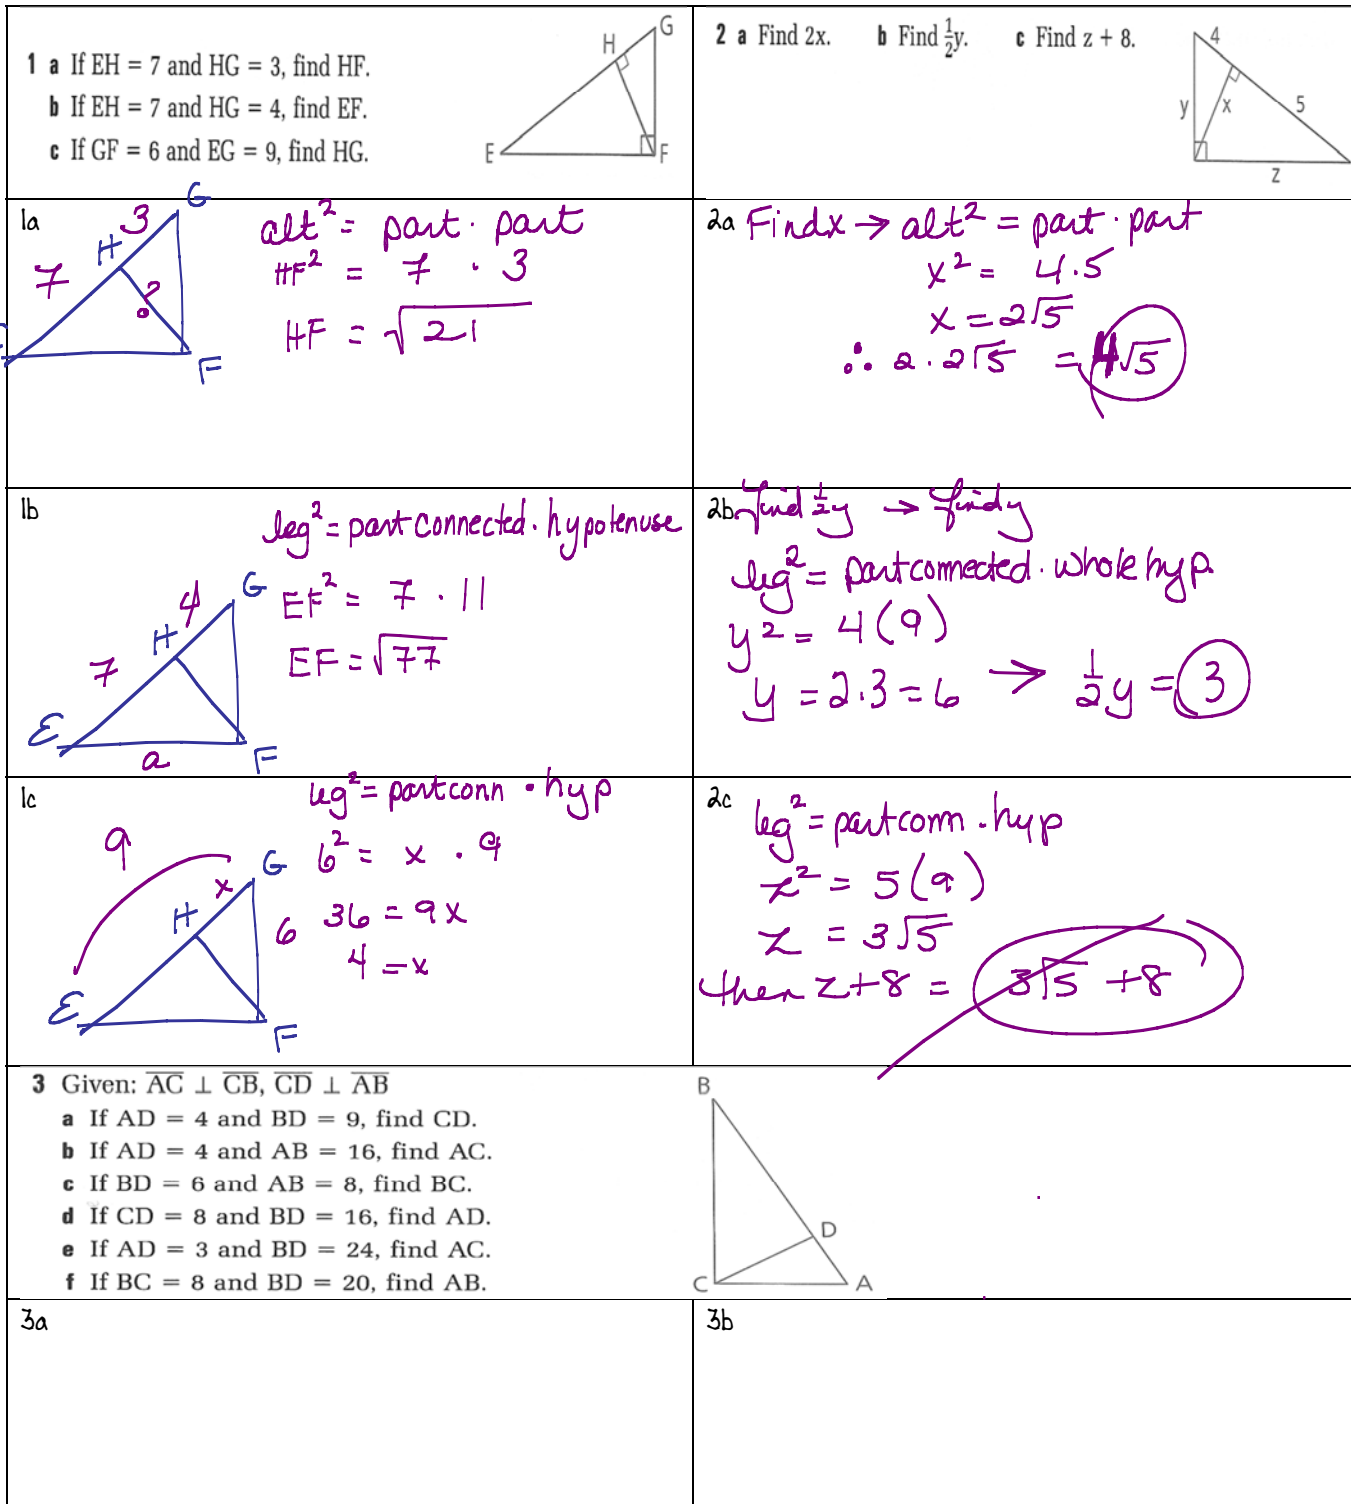 1 a If EH = 7 and HG = 3, find HF.
b If EH = 7 and HG = 4, find EF.
c If GF = 6 and EG = 9, find HG.
G
H
E
F
2 a Find 2x. b Find ½y. c Find z + 8.
4
y
x
5
z
1a
G
3
H
7
?
F
alt² = part · part
HF² = 7 · 3
HF = √21
2a Find x → alt² = part · part
x² = 4.5
x = 2√5
∴ 2 · 2√5 = 4√5
1b
leg² = part connected · hypotenuse
G
4
H
7
E
a
F
EF² = 7 · 11
EF = √77
2b Find ½y → find y
leg² = part connected · whole hyp.
y² = 4(9)
y = 2.3 = 6 → ½y = 3
1c
leg² = part conn · hyp
9
G
x
H
6
E
F
6² = x · 9
36 = 9x
4 = x
2c
leg² = part conn · hyp
z² = 5(9)
z = 3√5
then z + 8 = 3√5 + 8
3 Given: AC ⊥ CB, CD ⊥ AB
a If AD = 4 and BD = 9, find CD.
b If AD = 4 and AB = 16, find AC.
c If BD = 6 and AB = 8, find BC.
d If CD = 8 and BD = 16, find AD.
e If AD = 3 and BD = 24, find AC.
f If BC = 8 and BD = 20, find AB.
B
D
C
A
3a
3b